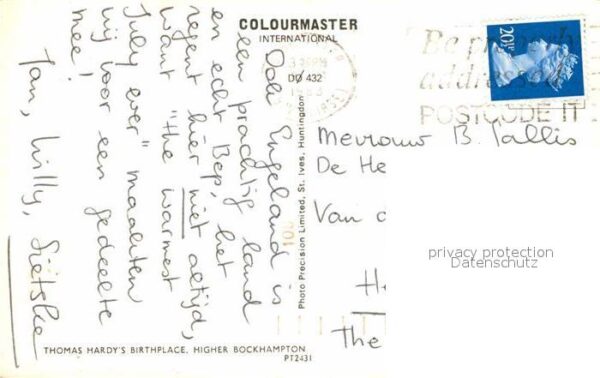 COLOURMASTER
INTERNATIONAL
Ook Engeland is
een prachtig land
en echt Bep, het
regent hier niet altijd,
want "the warmest
July ever" maakten
wij voor een gedeelte
mee!
Jan, Willy, Sietske
Photo Precision Limited, St. Ives, Huntingdon
20½P
1983
Be properly
addressed
POSTCODE IT
Mevrouw B. Tallis
De He
Van d
privacy protection
Datenschutz
He
The
THOMAS HARDY'S BIRTHPLACE, HIGHER BOCKHAMPTON
PT2431